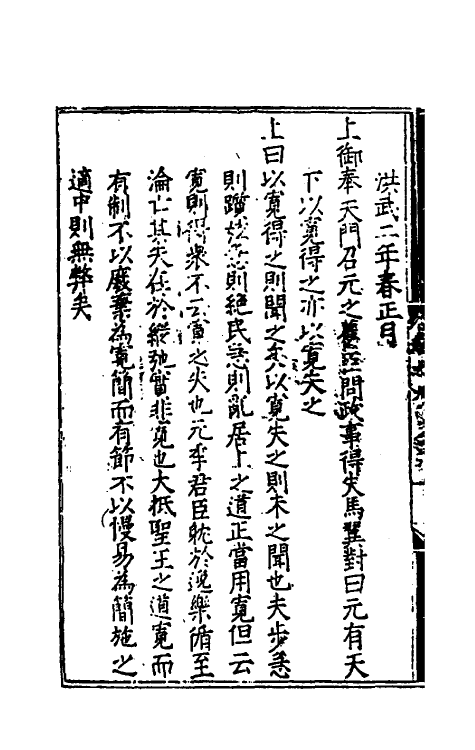 洪武二年春正月
上御奉天門召元之舊臣問政事得失馬翼對曰元有天
下以寬得之亦以寬失之
上曰以寬得之則聞之矣以寬失之則未之聞也夫步急
則躓弦急則絕民急則亂居上之道正當用寬但云
寬則得衆不云寬之失也元季君臣耽於逸樂循至
淪亡其失在於縱弛實非寬也大抵聖王之道寬而
有制不以廢棄為寬簡而有節不以慢易為簡施之
適中則無弊矣